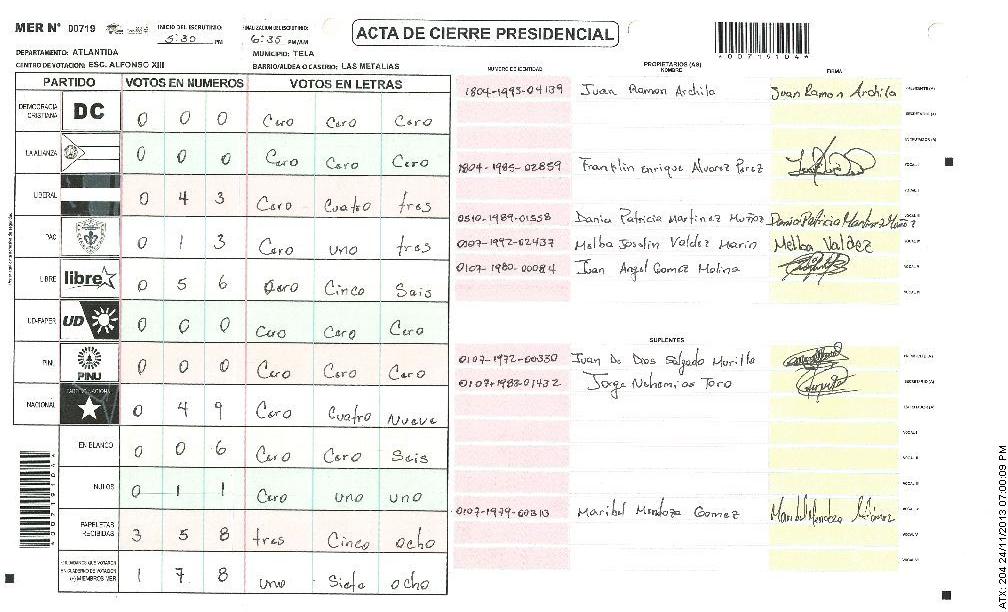 MER N° 00719
INICIO DEL ESCRUTINIO: 5:30 PM
FINALIZACION DEL ESCRUTINIO: 6:35 PM/AM
ACTA DE CIERRE PRESIDENCIAL
*00719104*
DEPARTAMENTO: ATLANTIDA
MUNICIPIO: TELA
CENTRO DE VOTACION: ESC. ALFONSO XIII
BARRIO/ALDEA O CASERIO: LAS METALIAS
PARTIDO VOTOS EN NUMEROS VOTOS EN LETRAS
DEMOCRACIA CRISTIANA DC 0 0 0 Cero Cero Cero
LA ALIANZA 0 0 0 Cero Cero Cero
LIBERAL 0 4 3 Cero Cuatro tres
PAC 0 1 3 Cero uno tres
LIBRE libre 0 5 6 Cero Cinco Seis
UD-FAPER UD 0 0 0 Cero Cero Cero
PINU PINU 0 0 0 Cero Cero Cero
NACIONAL PARTIDO NACIONAL 0 4 9 Cero Cuatro Nueve
EN BLANCO 0 0 6 Cero Cero Seis
NULOS 0 1 1 Cero uno uno
PAPELETAS RECIBIDAS 3 5 8 tres Cinco ocho
CIUDADANOS QUE VOTARON EN CUADERNO DE VOTACION (+) MIEMBROS MER 1 7 8 uno Siete ocho
*00719104*
NUMERO DE IDENTIDAD
PROPIETARIOS (AS)
NOMBRE
FIRMA
1804-1993-04139 Juan Ramon Archila Juan Ramon Archila PRESIDENTE (A)
SECRETARIO (A)
ESCRUTADOR (A)
1804-1985-02859 Franklin Enrique Alvarez Perez VOCAL I
VOCAL II
0510-1989-01558 Dania Patricia Martinez Muñoz Dania Patricia Martinez Muñoz VOCAL III
0107-1992-02437 Melba Josslin Valdez Marin Melba Valdez VOCAL IV
0107-1980-00084 Juan Angel Gomez Molina VOCAL V
VOCAL VI
SUPLENTES
0107-1972-00330 Juan De Dios Salgado Morillo PRESIDENTE (A)
0107-1983-01432 Jorge Nehemias Toro SECRETARIO (A)
ESCRUTADOR (A)
VOCAL I
VOCAL II
VOCAL III
0107-1979-00313 Maribel Mendoza Gomez Maribel Mendoza Gómez VOCAL IV
VOCAL V
VOCAL VI
ATX: 204 24/11/2013 07:00:09 PM